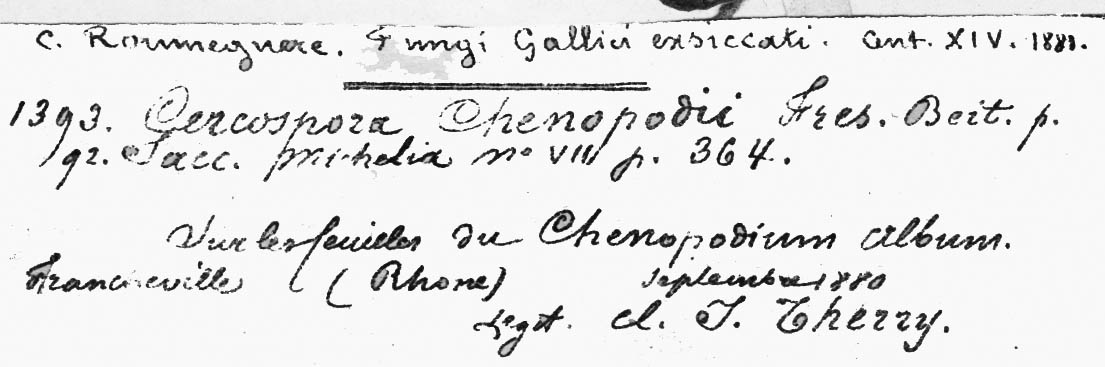 C. Roumeguere. Fungi Gallici exsiccati. Cent. XIV. 1881.
1393. Cercospora Chenopodii Fres. Beit. p.
92. Sacc. Michelia no VII p. 364.
Sur les feuilles du Chenopodium album.
Francheville (Rhone) Septembre 1880
Legit. cl. J. Therry.